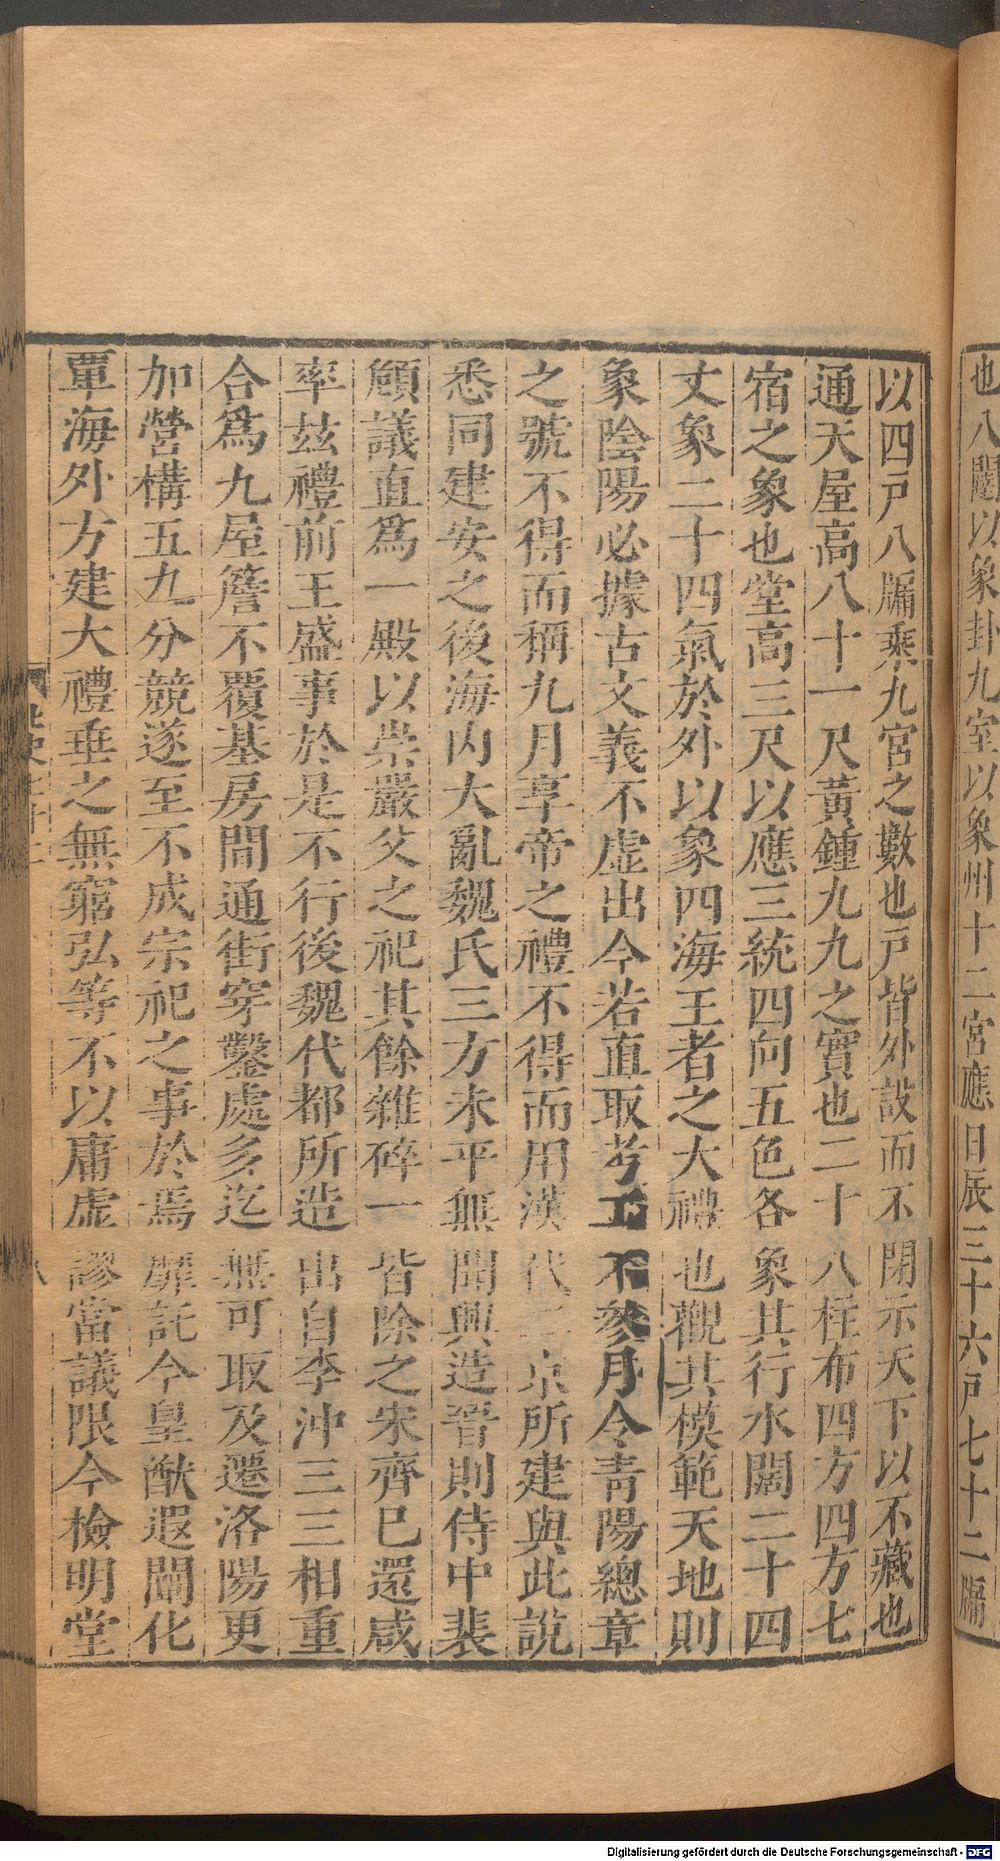 也八闥以象卦九室以象州十二宮應日辰三十六戶七十二牖
以四戶八牖乘九宮之數也戶皆外設而不閉示天下以不藏也
通天屋高八十一尺黃鍾九九之實也二十八柱布四方四方七
宿之象也堂高三尺以應三統四向五色各象其行水闊二十四
丈象二十四氣於外以象四海王者之大禮也觀其模範天地則
象陰陽必據古文義不虛出今若直取考工不參月令青陽總章
之號不得而稱九月享帝之禮不得而用漢代二京所建與此說
悉同建安之後海內大亂魏氏三方未平無聞興造晉則侍中裴
頠議直爲一殿以崇嚴父之祀其餘雜碎一皆除之宋齊已還咸
率玆禮前王盛事於是不行後魏代都所造出自李沖三三相重
合爲九屋簷不覆基房間通街穿鑿處多迄無可取及遷洛陽更
加營構五九分競遂至不成宗祀之事於焉靡託今皇猷遐闡化
覃海外方建大禮垂之無窮弘等不以庸虛謬當議限今檢明堂
Digitalisierung gefördert durch die Deutsche Forschungsgemeinschaft - DFG